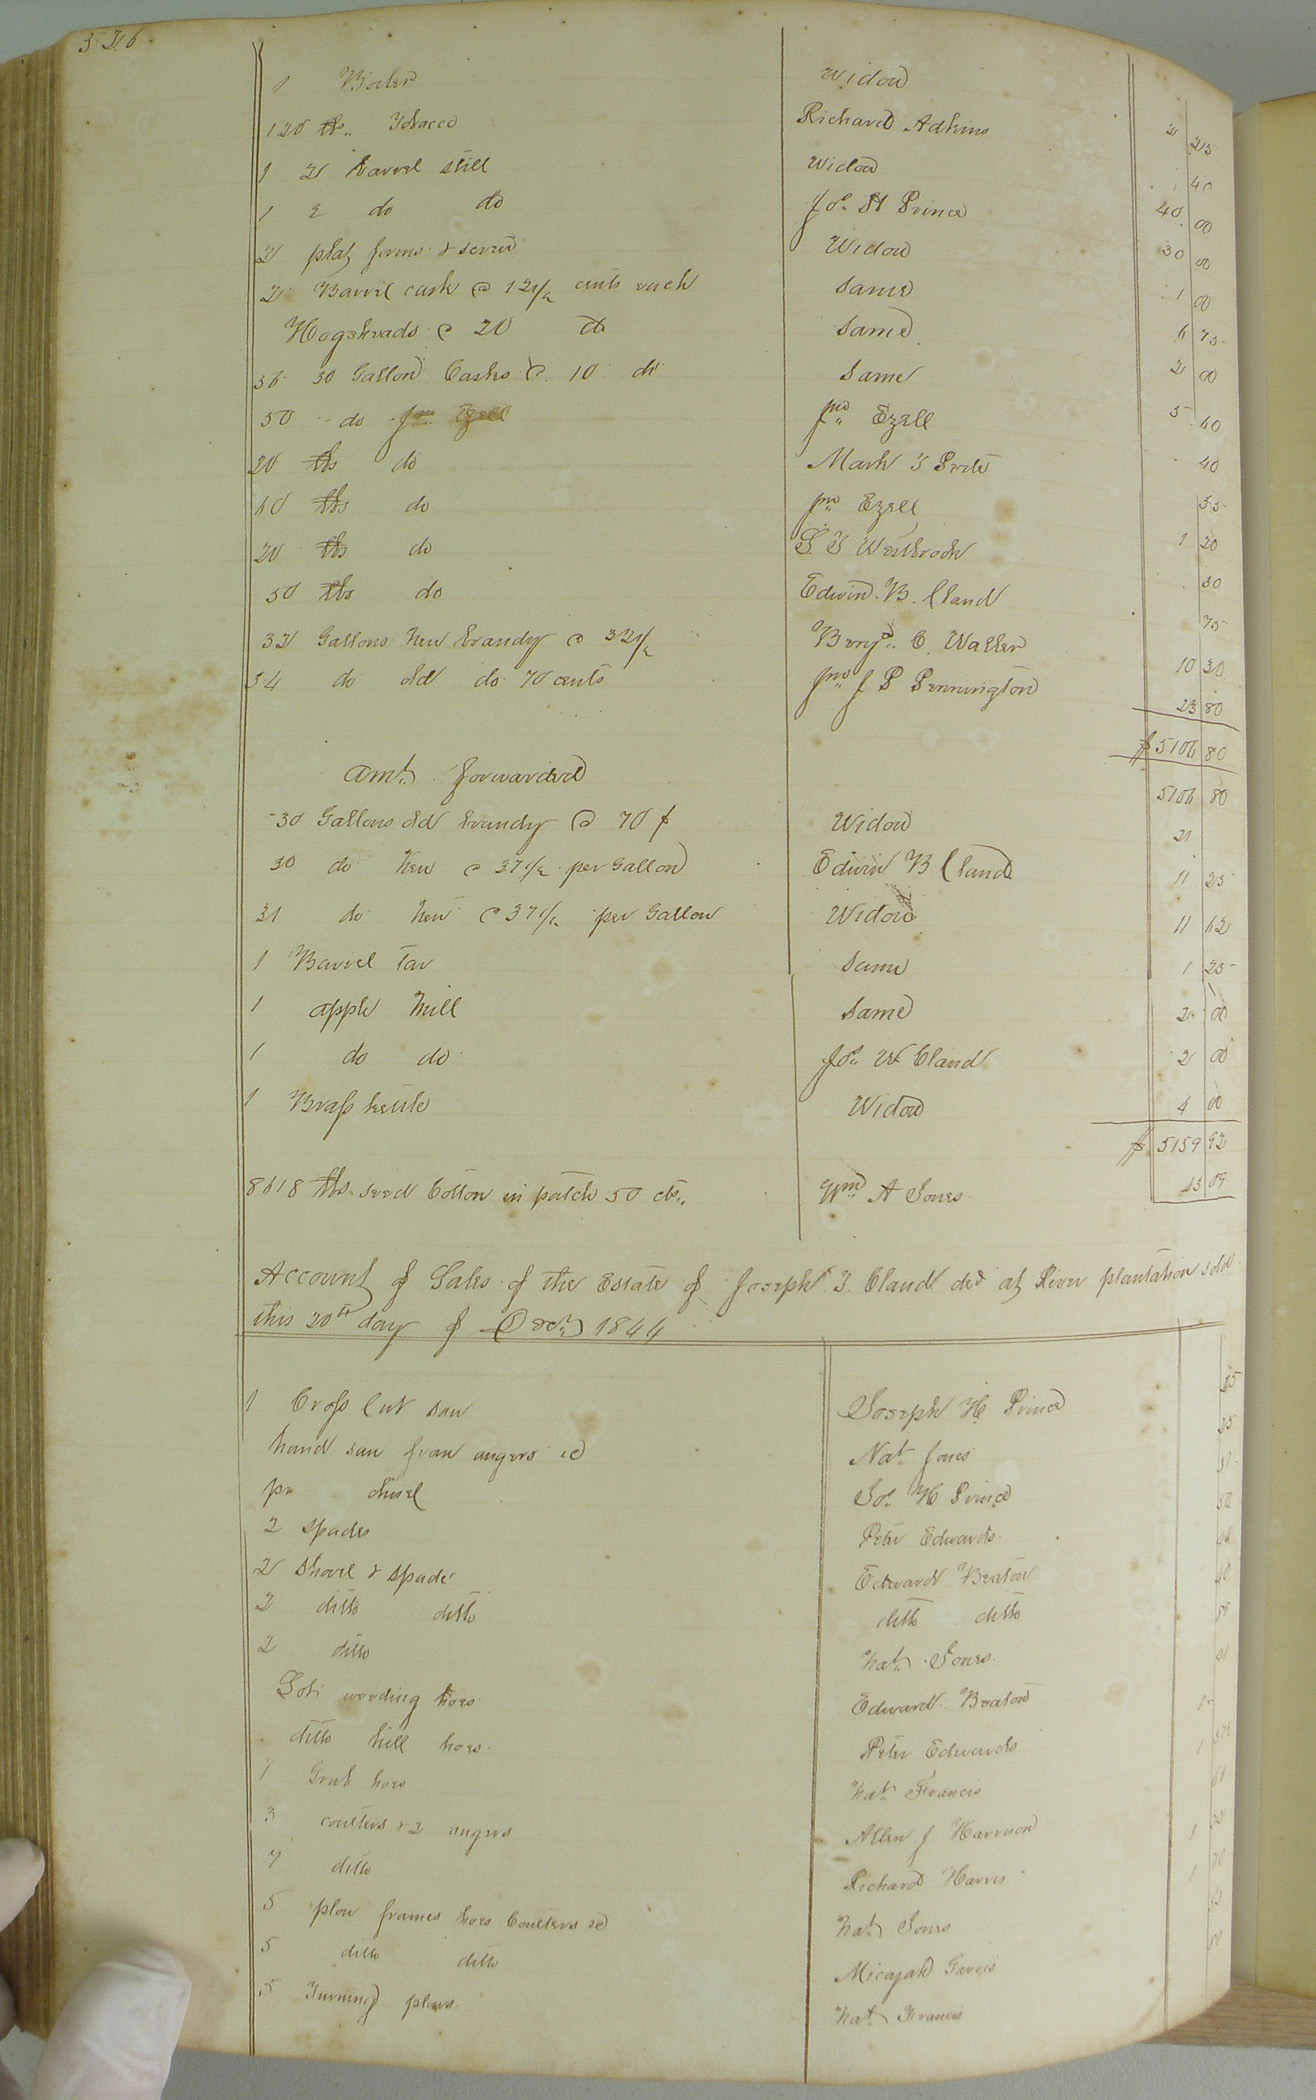 1 Boiler Widow 2 25
120 lbs.. Tobacco Richard Adkins 40
1 2 Barrel still Widow 40 00
1 2 do do Jos. H Prince 30 00
2 plat forms & screw Widow 1 00
2 Barril cask @ 12 1/2 cents each Same
Hogsheads @ 20 do Same 6 75
36 30 Gallon Casks @. 10 do Same 2 00
50 do Jno Ezell 5 60
20 lbs do Mark 40
lbs do Jno Ezell
20 lbs do S. T Westbrook 1 20
50 lbs do Edwin. B. Claud 30
75
32 Gallons new brandy @ 32 1/2 Benjn.. C. Waller 10 30
34 do old do 70 cents Jno J P Pennington 23 80
$5106 80
amt. forwarded 5106 80
30 Gallons old brandy @ 70 ¢ Widow 21
30 do new @ 37 1/2 per Gallon Edwin B Claud 11 25
31 do new @ 37 1/2 per Gallon Widow 11 62
1 Barrel Tar Same 1 25
1 apple mill Same 2 00
1 do do Jos. W Claud 2 00
1 Brass kettle Widow 4 00
$ 5159 92
8618 lbs. seed Cotton in patch 50 cts.. Wm A Jones 43 09
Account of Sales of the Estate of Joseph T. Claud decd at River plantation sold
this 20th day of Decr 1844
1 Cross Cut saw Joseph H. Prince
hand saw augers &c Nat. Jones 25
pr chisel Jos. H Prince
2 spades Peter Edwards. 50
2 Shovel & spade Edward Beaton
2 ditto ditto ditto ditto
2 ditto Nat.. Jones.
Lot weeding hoes Edward. Beaton
ditto hill hoes. Peter Edwards
7 Grub hoes Nat. Francis
3 coulters & 2 augers Allen J. Harrison
7 ditto Richard Harris
5 plow frames hoes Coulters &c Nat. Jones
5 ditto ditto Micajah
5 Turning plows Nat. Francis